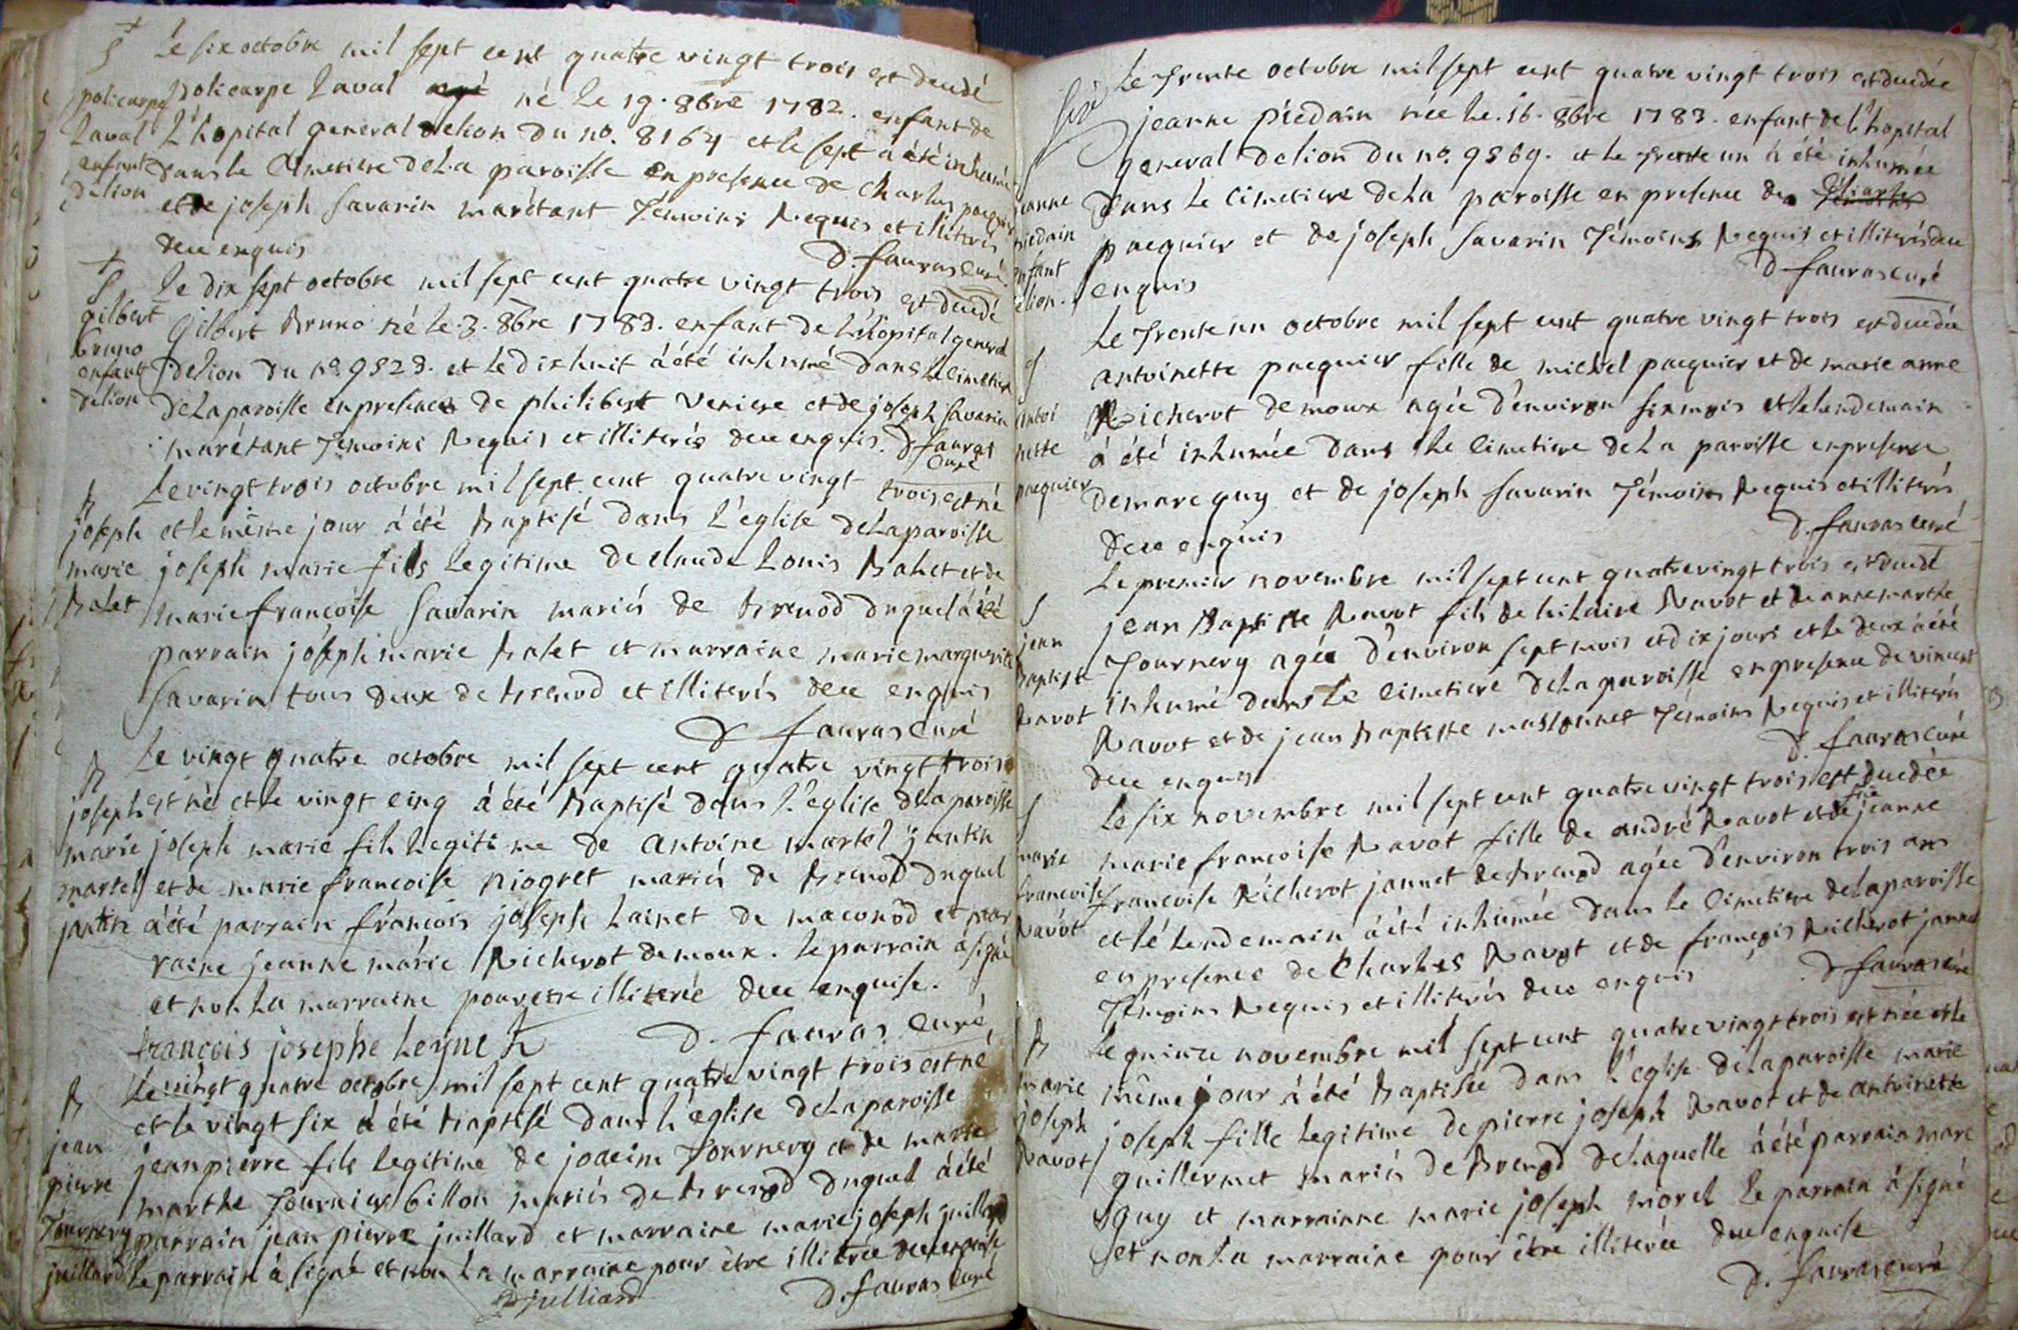 S
Le six octobre mil sept cent quatre vingt trois est decedé
policarpe Laval né le 19. 8bre 1782. enfant de
L'hopital general delion du no. 8164 et le sept à été inhumé
dans le Cimetiere de La paroisse en presence de Charles pacquier
et de joseph Savarin marétant Témoins Requis et illiterés
dece enquis
D. fauras curé
policarpe
Laval
enfant
delion
Le dix sept octobre mil sept cent quatre vingt trois est decedé
Gilbert Bruno né le 3. 8bre 1783. enfant de L'hopital general
delion du no. 9523. et Le dix huit à été inhumé dans Le Cimetiere
de La paroisse en presence de philibert Veniere et de joseph Savarin
marétant Témoins Requis et illiterés dece enquis. D fauras
Curé
S
gilbert
bruno
enfant
delion
Le vingt trois octobre mil sept cent quatre vingt trois est né
et le même jour à été Baptisé dans L'eglise de La paroisse
joseph marie fils Legitime de claude Louis Balet et de
marie françoise Savarin mariés de Brenod duquel à été
parrain joseph marie Balet et marraine marie marguerite
Savarin tous deux de Brenod et illiterés dece enquis
D fauras Curé
B
joseph
marie
Balet
Le vingt quatre octobre mil sept cent quatre vingt trois
est né et le vingt cinq à été Baptisé dans L'eglise de La paroisse
joseph marie fils Legitime de antoine martel jantin
et de marie françoise niogret mariés de Brenod duquel
à été parrain françois joseph Lainet de maconod et mar
raine jeanne marie Richerot demoux. Le parrain à signé
et non La marraine pour etre illiterée dece enquise.
françois josephe Leynet
D. fauras Curé
B
joseph
marie
martel
jantin
Le vingt quatre octobre mil sept cent quatre vingt trois est né
et le vingt six à été Baptisé dans L'église de La paroisse
jean pierre fils Legitime de joacim Tournery et de marie
marthe Tournier billon mariés de Brenod duquel à été
parrain jean pierre juillard et marraine marie joseph juillard
le parrain à signé et non La marraine pour être illiterée dece enquise
julliard
D. fauras Curé
B
jean
pierre
Tournery
juillard
Le Trente octobre mil sept cent quatre vingt trois est decedée
jeanne piédain née Le. 16. 8bre 1783. enfant de L'hopital
general delion du no. 9569. et le Trente un à été inhumée
dans Le Cimetiere de La paroisse en presence de Charles
pacquier et de joseph Savarin Témoins Requis et illiterés dece
enquis
D fauras curé
jeanne
piedain
enfant
delion.
Le Trente un octobre mil sept cent quatre vingt trois est decedée
antoinette pacquier fille de michel pacquier et de marie anne
Richerot demoux agée d'environ six mois et le lendemain
à été inhumée dans Le Cimetiere de La paroisse en presence
de marc guy et de joseph Savarin Témoins Requis et illiterés
dece enquis
D. fauras curé
S
antoi
nette
pacquier
Le premier novembre mil sept cent quatre vingt trois est decedé
jean Baptiste Ravot fils de hilaire Ravot et de anne marthe
Tournery agée d'environ sept mois et dix jours et le deux à été
inhumé dans Le Cimetiere de La paroisse en presence de vincent
Ravot et de jean Baptiste massonnet Témoins Requis et illiterés
dece enquis
D. fauras curé
S
jean
Baptiste
Ravot
Le six novembre mil sept cent quatre vingt trois est decedée
marie françoise Ravot fille de andré Ravot et de jeanne
françoise Richerot jannet de Brenod agée d'environ trois ans
et Le Lendemain à été inhumée dans Le Cimetiere de La paroisse
en presence de Charles Ravot et de françois Richerot jannet
Témoins Requis et illiterés dece enquis
D fauras curé
S
marie
françoise
Ravot
Le quinze novembre mil sept cent quatre vingt trois est née et le
même jour à été Baptisée dans L'église de La paroisse marie
joseph fille Legitime de pierre joseph Ravot et de antoinette
guillermet mariés de Brenod de Laquelle à été parrain marc
guy et marrainne marie joseph morel Le parrain à signé
et non La marraine pour être illiterée dece enquise
D. fauras curé
B
marie
joseph
Ravot